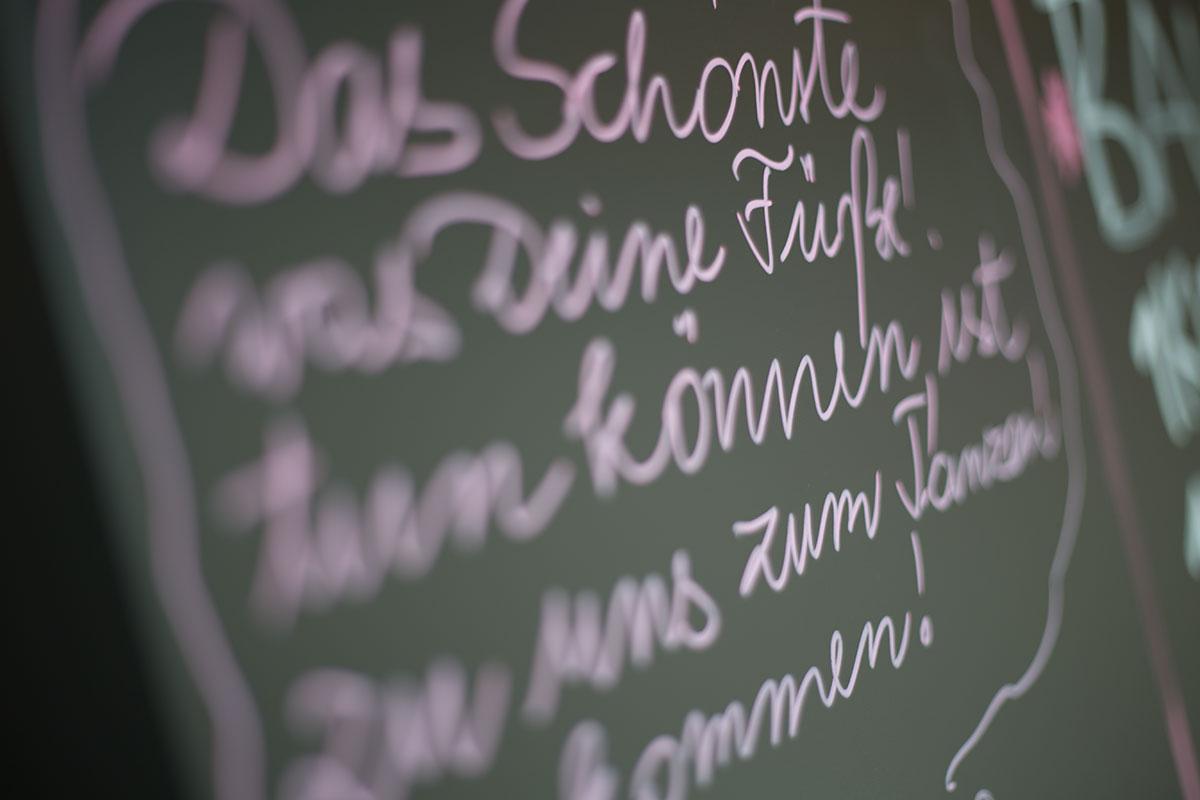 Das Schönste
was Deine Füße!
tun können, ist
zu uns zum Tanzen!
kommen!
BA